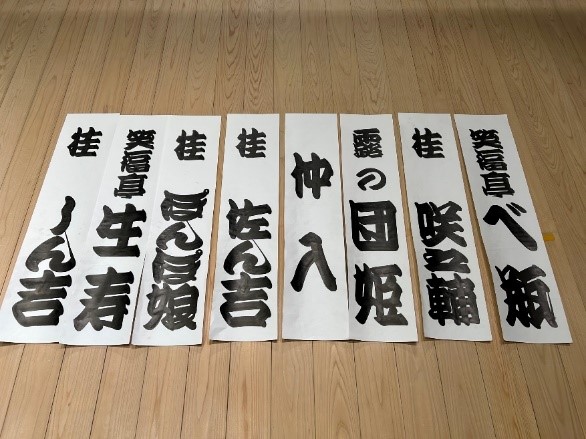 笑福亭べ瓶
桂 咲之輔
露の団姫
仲入
桂 佐ん吉
桂 ぽんぽ娘
笑福亭生寿
桂 しん吉